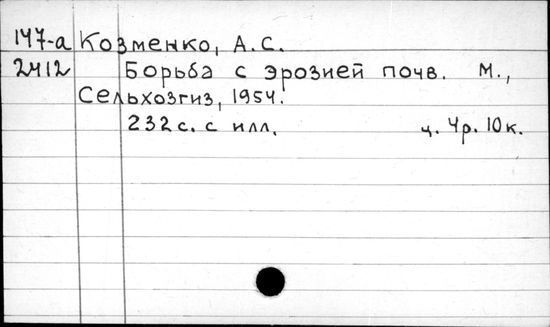 147-а Козменко, А.С.
2412 Борьба с эрозией почв. М.,
Сельхозгиз, 1954.
232 с. с илл. ц. 4р. 10к.